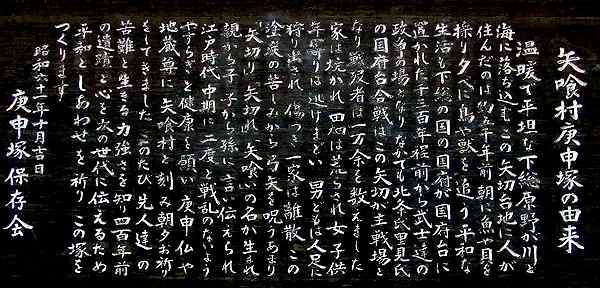 矢喰村庚申塚の由来
温暖で平坦な下総原野が川と
海に落ち込むこの矢切台地に人が
住んだのは約五千年前朝に魚や貝を
採り夕べに鳥や獣を追う平和な
生活も下総の国の国府が国府台に
置かれた千三百年程前から武士達の
政争の場となりなかでも北条氏里見氏
の国府台合戦はこの矢切が主戦場と
なり戦死者は一万余を数えました
家は焼かれ田畑は荒らされ女子供
年寄りは逃げまどい男どもは人足に
狩り出され傷つき一家は離散この
塗炭の苦しみから弓矢を呪うあまり
「矢切り」「矢切れ」「矢喰い」の名が生まれ
親から子へ子から孫に言い伝えられ
江戸時代中期に二度と戦乱のないよう
やすらぎと健康を願い庚申仏や
地蔵尊に矢喰村と刻み朝夕お祈り
をしてきましたこのたび先人達の
苦難と生きる力強さを知り四百年前
の遺蹟と心を次の世代に伝えるため
平和としあわせを祈りこの塚を
つくります
昭和六十一年十月吉日
庚申塚保存会